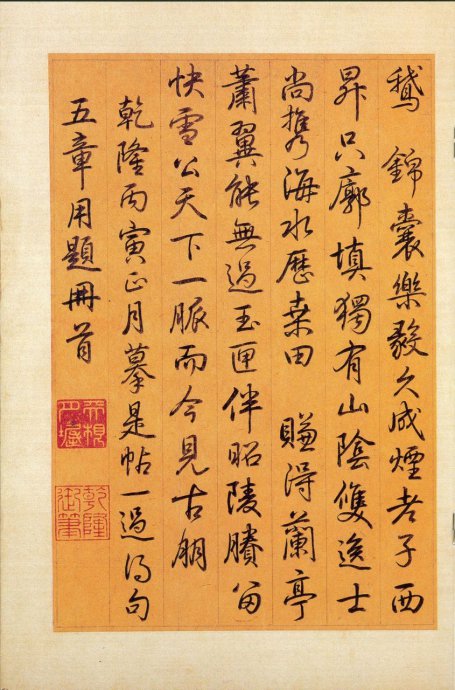 鹅 錦囊樂毅久成煙老子西
昇只廓填獨有山陰雙逸士
尚携海水歷桑田 賺得蘭亭
蕭翼能無過玉匣伴昭陵賸留
快雪公天下一脈而今見古朋
乾隆丙寅正月摹是帖一過得句
五章用題冊首
乾隆
御筆